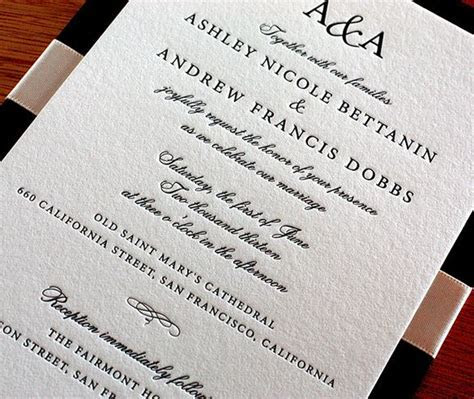 A&A
Together with our families
ASHLEY NICOLE BETTANIN
&
ANDREW FRANCIS DOBBS
joyfully request the honor of your presence
as we celebrate our marriage
Saturday the first of June
Two thousand thirteen
at three o'clock in the afternoon
OLD SAINT MARY'S CATHEDRAL
660 CALIFORNIA STREET, SAN FRANCISCO, CALIFORNIA
Reception immediately follow
THE FAIRMONT
STREET, SAN FRANCISCO